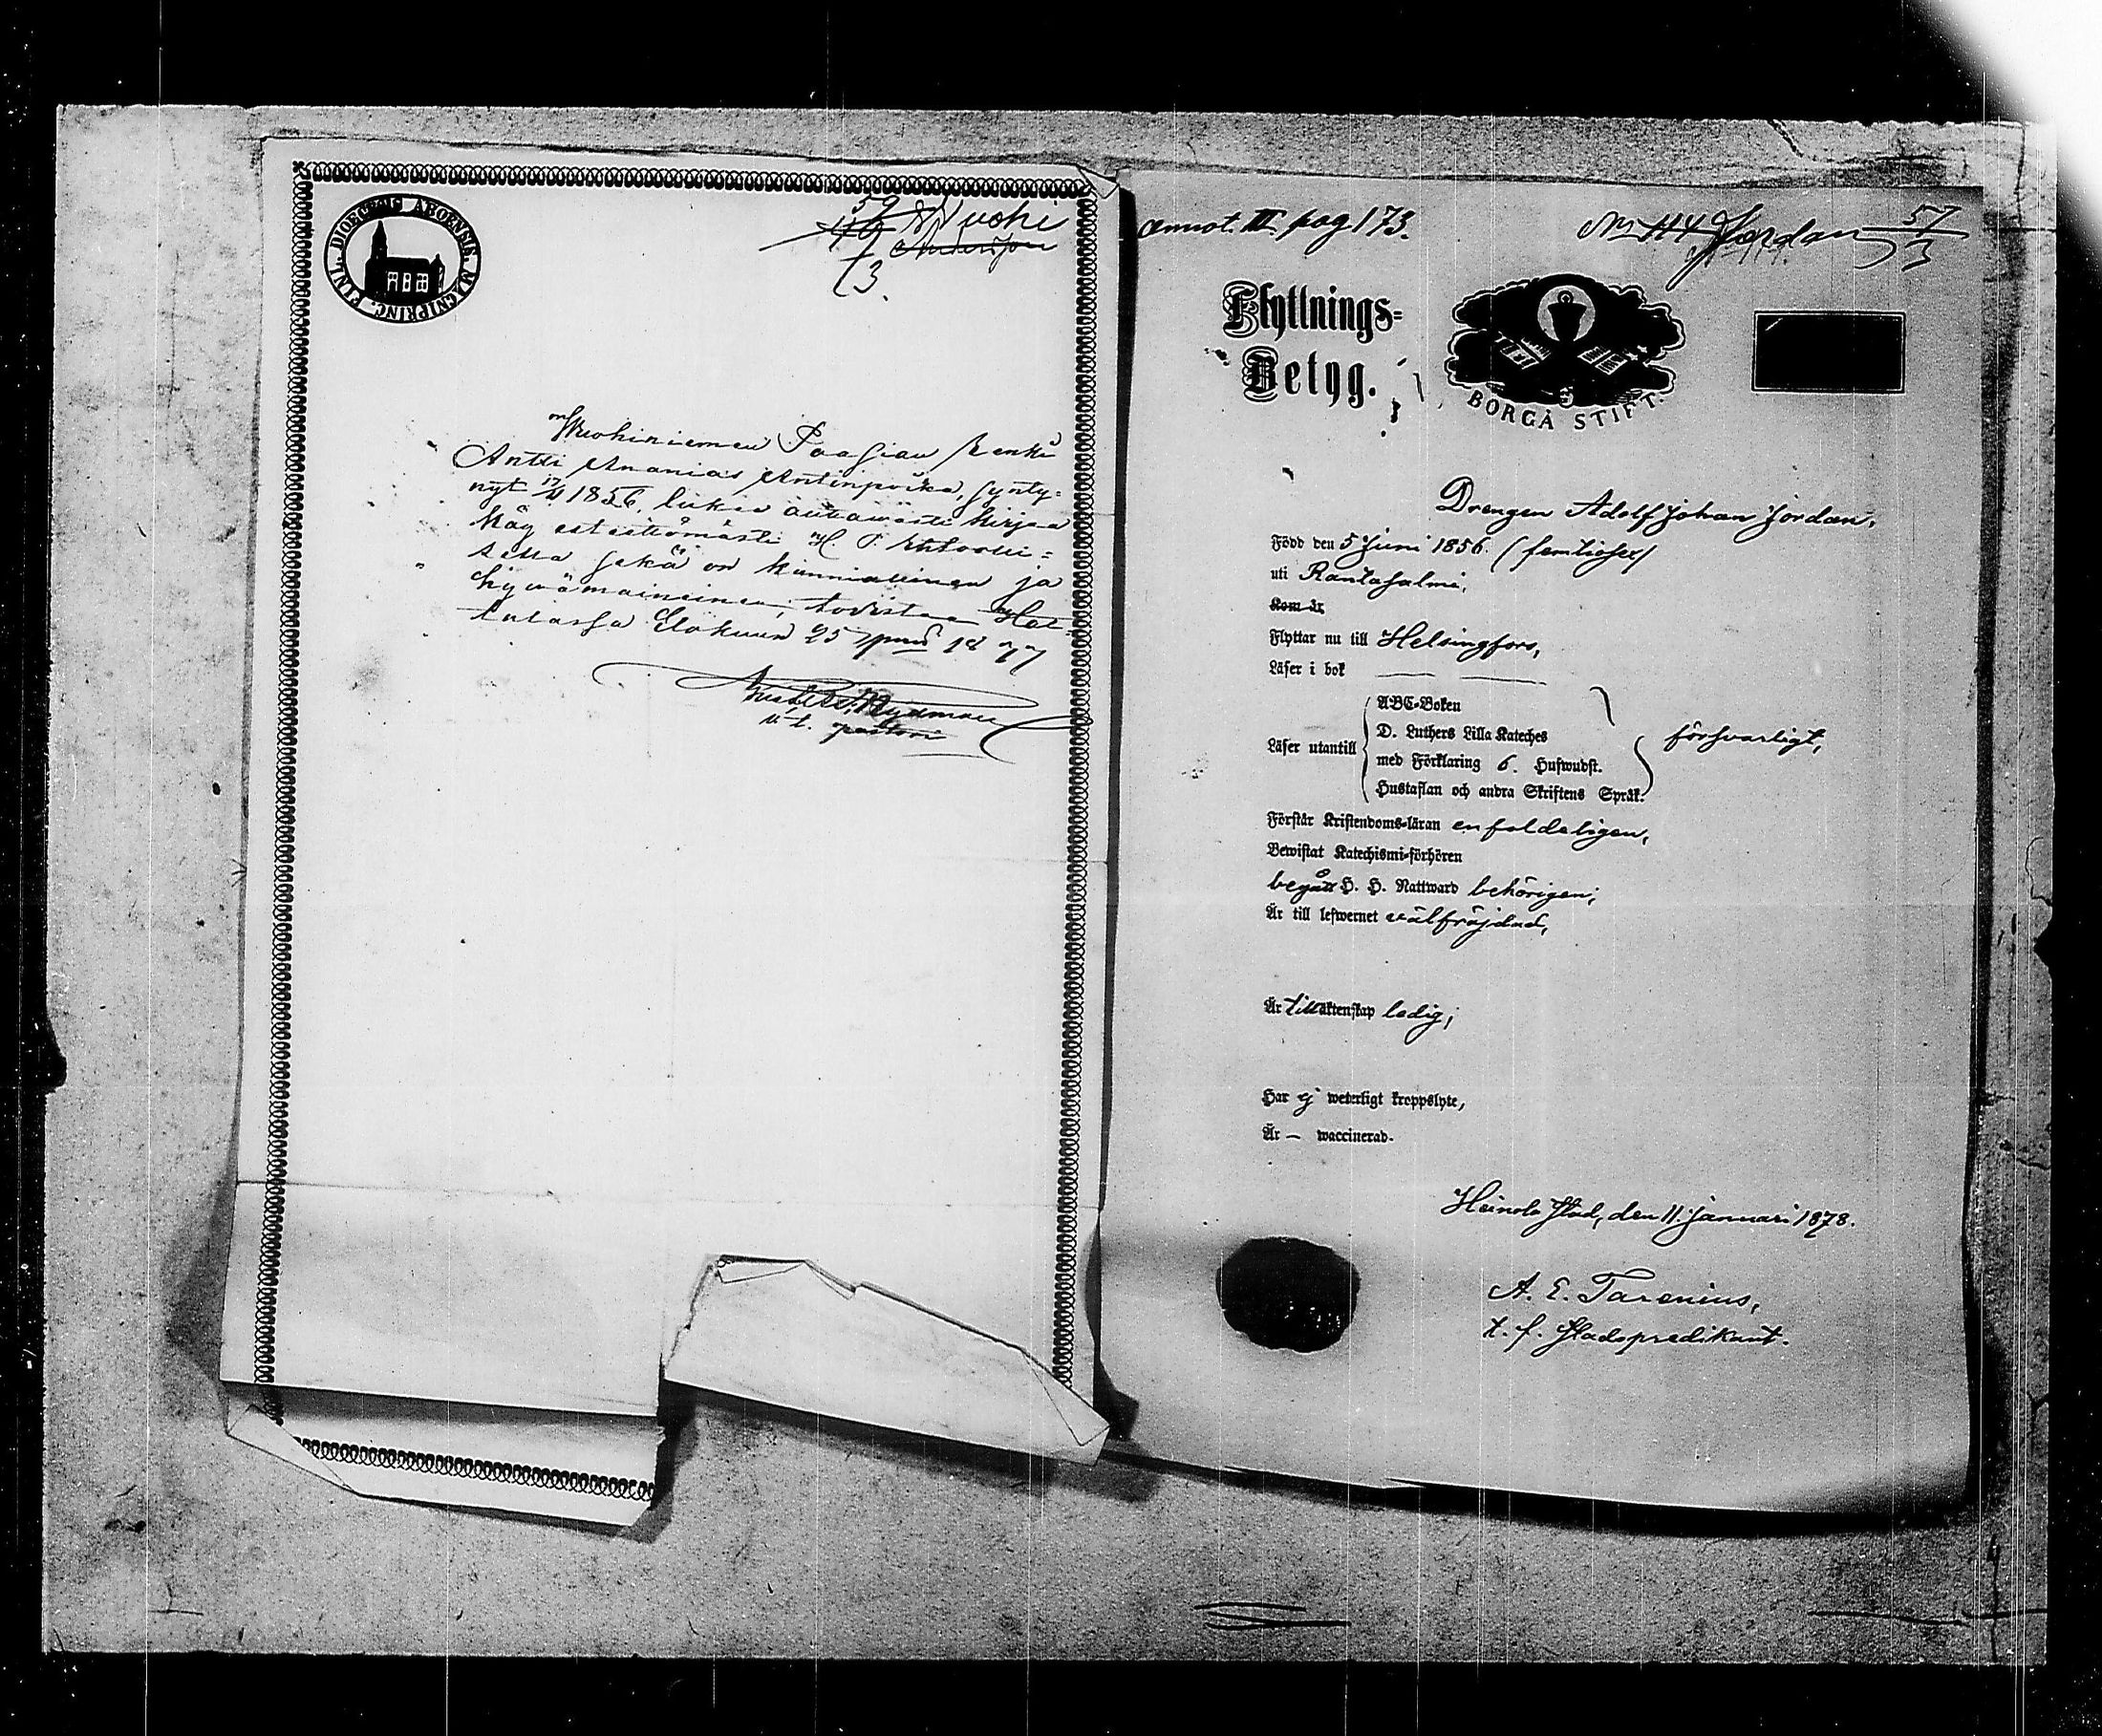 DIOECESIS ABOENSIS. MAGNI PRINC. FINL.
59
Wuohi
Andersson
73.
Wuohiniemen Paafian Renki
Antti Ananias Antinpoika, synty-
nyt 17/4 1856, lukee auttawasti kirjaa
käy esteettömästi H P. Ehtoolli-
sella sekä on kunniallinen ja
hywämaineinen, todistaa Hat-
tulassa Elokuun 25 pnä 1877
v. t. pastori
annot. III pag 173.
No 114 Jordan 57/3
Flyttnings-
Betyg.
BORGÅ STIFT.
Drengen Adolf Johan Jordan,
Född den 5 Juni 1856. (femtiosex)
uti Rantasalmi,
Kom år
Flyttar nu till Helsingfors,
Läser i bok — —
ABC-Boken
D. Luthers Lilla Kateches
Läser utantill försvarligt,
med Förklaring 6. Hufwudst.
Hustaflan och andra Skriftens Språk.
Förstår Kristendoms-läran enfaldeligen,
Bewistat Katechismi-förhören
begått H. H. Nattward behörigen;
Är till lefwernet välfräjdad,
Är till äktenskap ledig;
Har ej weterligt kroppslyte,
Är — waccinerad.
Heinola stad, den 11 januari 1878.
A. E. Tarenius,
t. f. stadspredikant.